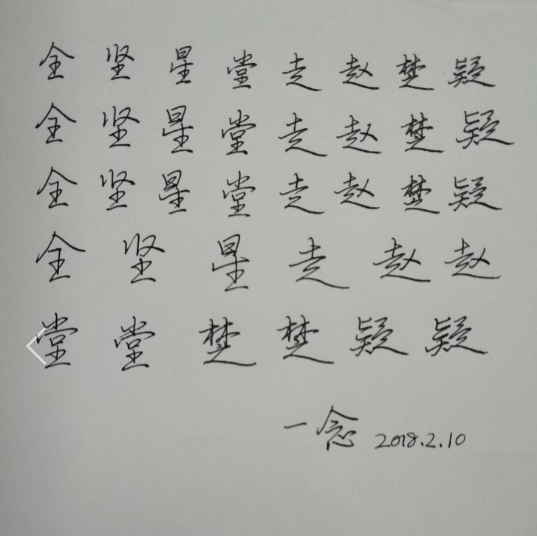 全坚星堂走赵楚疑
全坚星堂走赵楚疑
全坚星堂走赵楚疑
全坚星走赵赵
堂堂楚楚疑疑
一念 2018.2.10